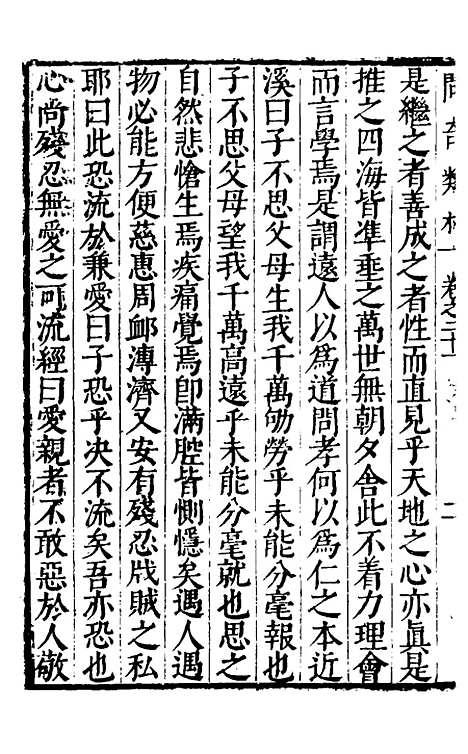 問奇類林 卷之二十 二
是繼之者善成之者性而直見乎天地之心亦眞是
推之四海皆準垂之萬世無朝夕舍此不着力理會
而言學焉是謂遠人以爲道問孝何以爲仁之本近
溪曰子不思父母生我千萬劬勞乎未能分毫報也
子不思父母望我千萬高遠乎未能分毫就也思之
自然悲愴生焉疾痛覺焉卽滿腔皆惻隱矣遇人遇
物必能方便慈惠周卹溥濟又安有殘忍戕賊之私
耶曰此恐流於兼愛曰子恐乎决不流矣吾亦恐也
心尚殘忍無愛之可流經曰愛親者不敢惡於人敬